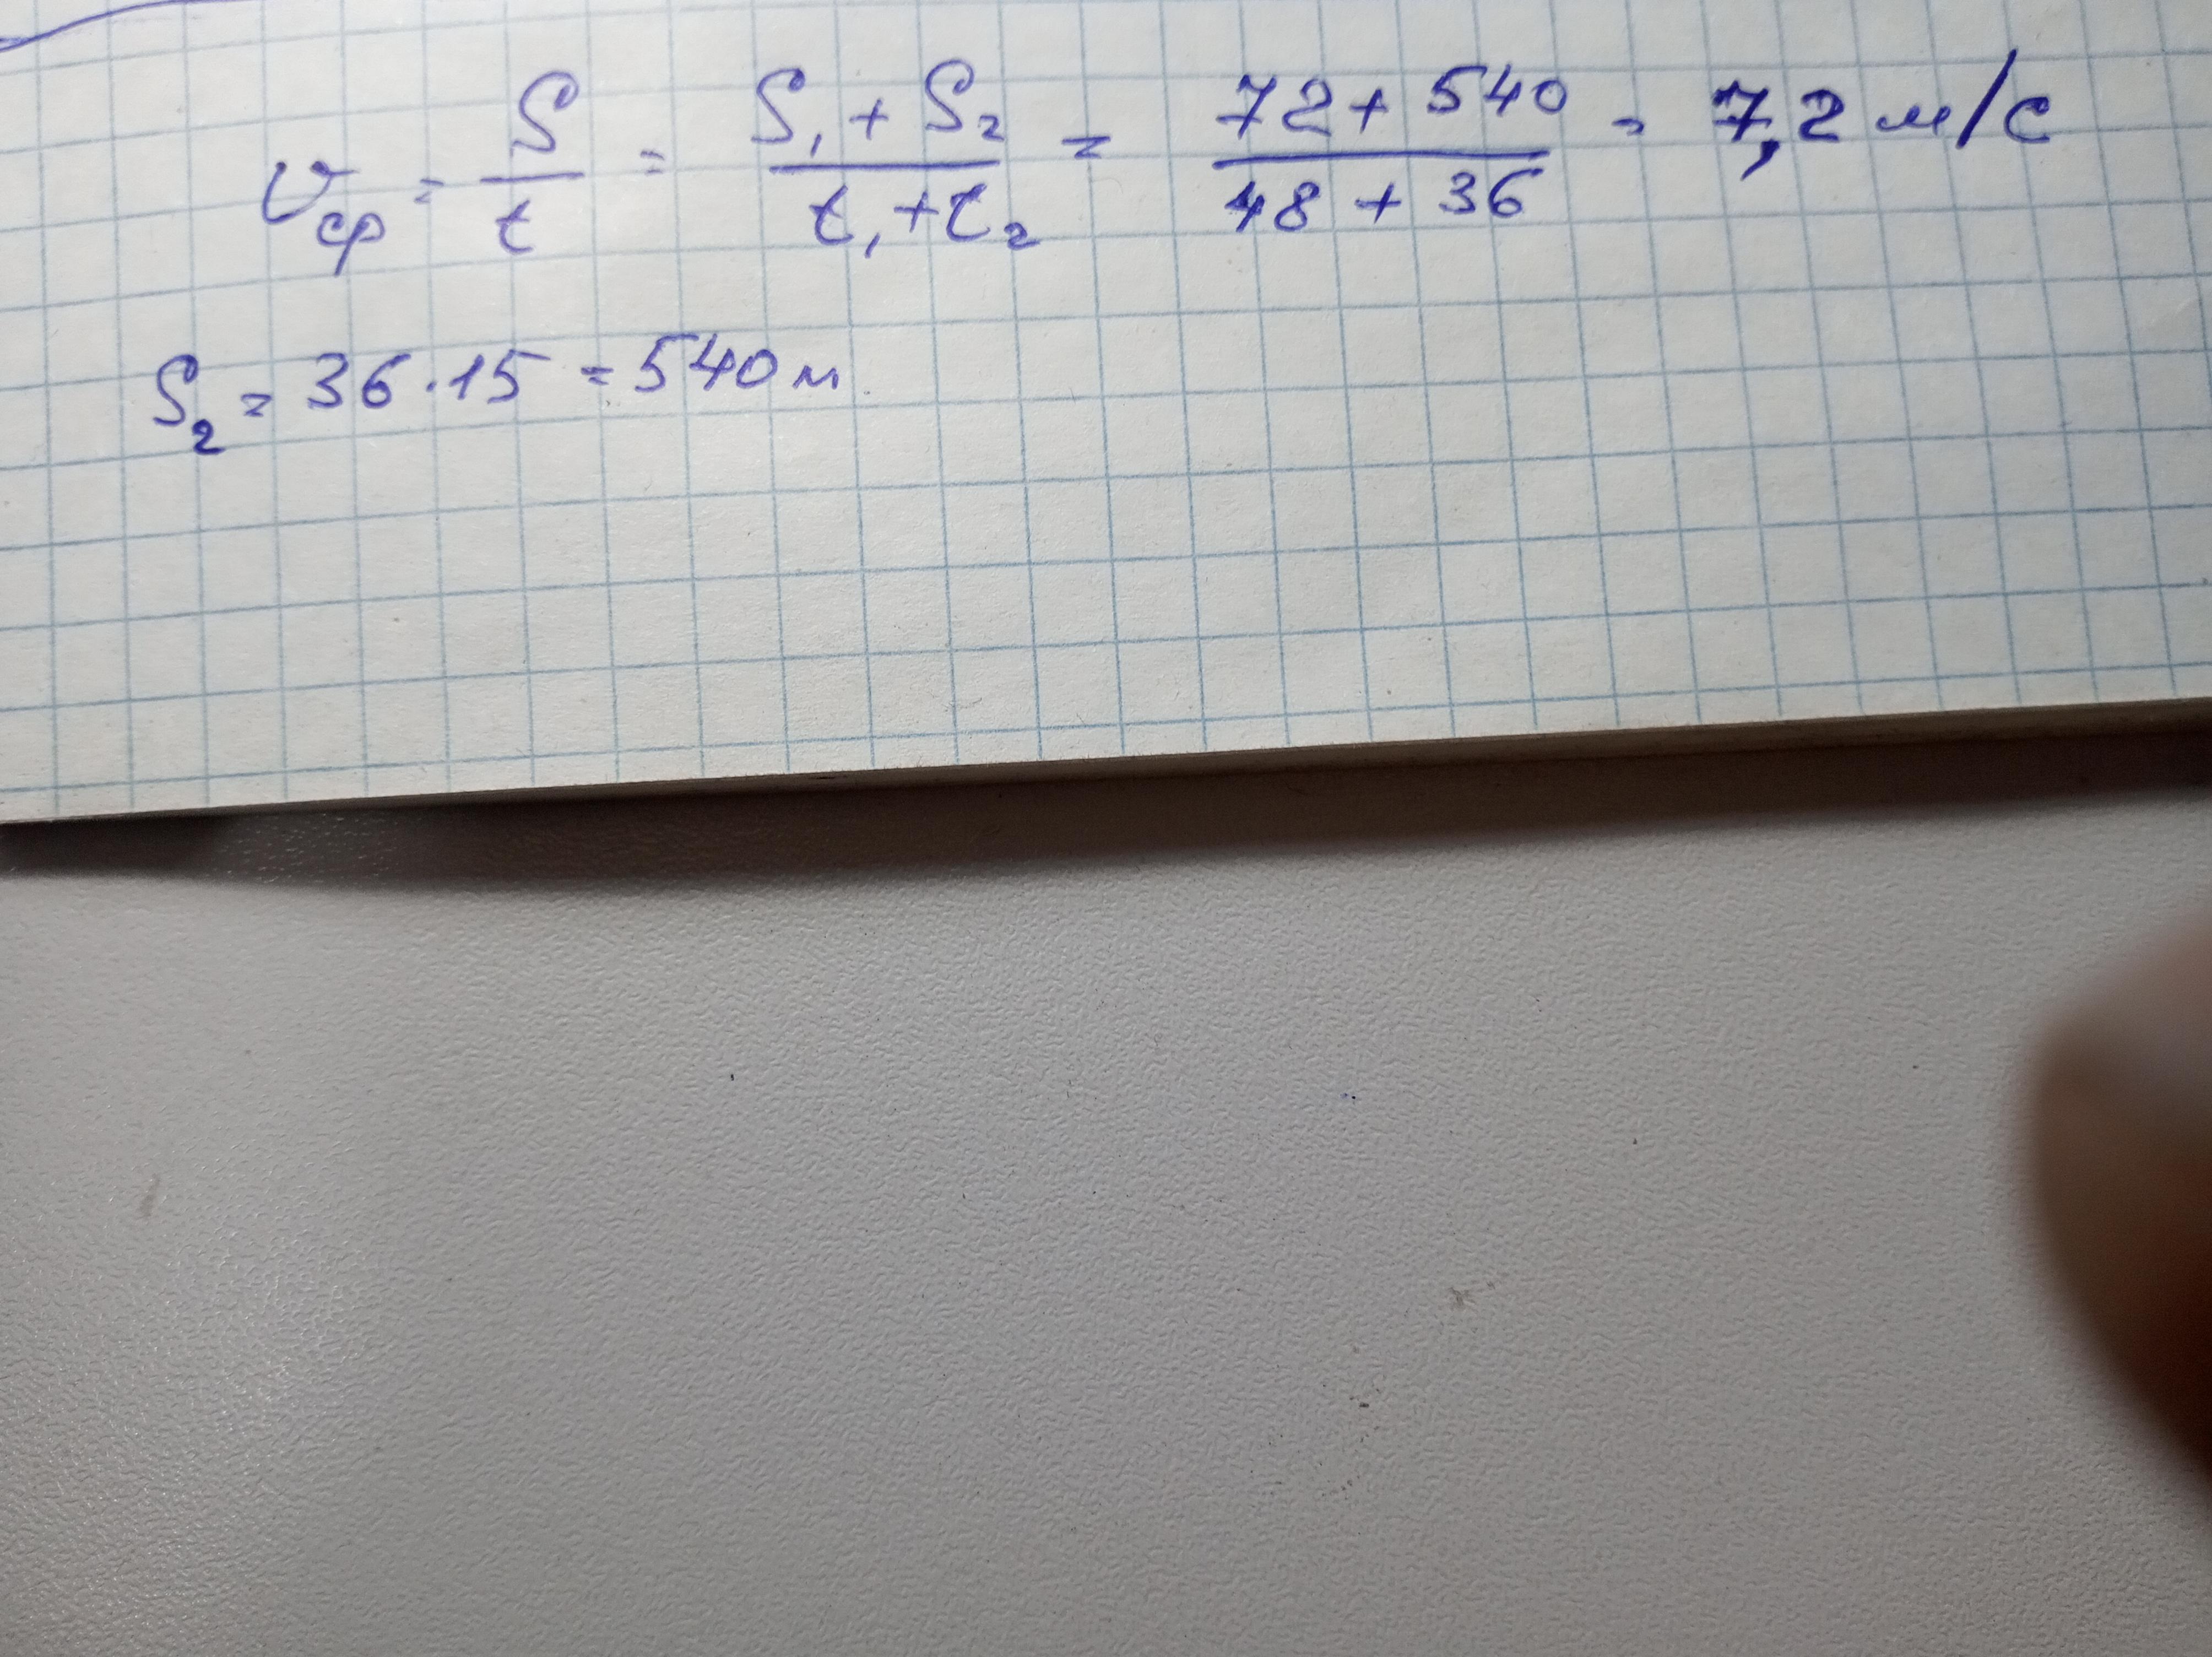 v_ср = S/t = (S₁ + S₂)/(t₁ + t₂) = (72 + 540)/(48 + 36) = 7,2 м/с
S₂ = 36 · 15 = 540 м